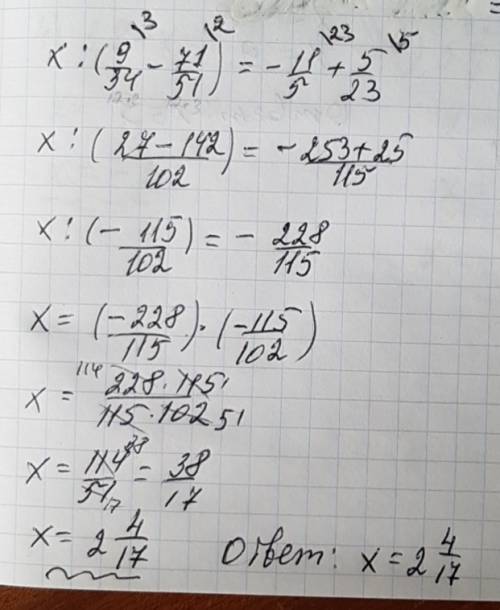 x : (9/34 \3 − 71/51 \2) = − 11/5 \23 + 5/23 \5
x : (27 − 142 / 102) = − 253 + 25 / 115
x : (− 115/102) = − 228/115
x = (− 228/115) · (− 115/102)
x = 114 228 · 115 1 / 115 · 102 51
x = 114 38 / 51 17 = 38/17
x = 2 4/17 Ответ: x = 2 4/17